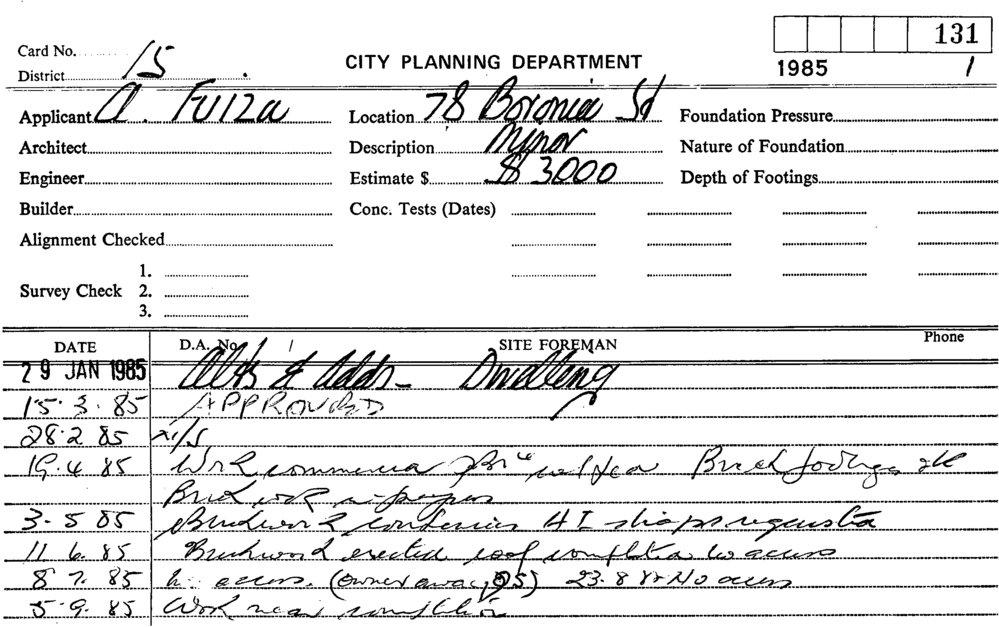 131
Card No. 15
CITY PLANNING DEPARTMENT
1985 1
District
Applicant A. Fuiza Location 78 Boronia St Foundation Pressure
Architect Description Minor Nature of Foundation
Engineer Estimate $ $ 3000 Depth of Footings
Builder Conc. Tests (Dates)
Alignment Checked
1.
Survey Check 2.
3.
DATE D.A. No. / SITE FOREMAN Phone
29 JAN 1985 Alts & Adds - Dwelling
15.3.85 APPROVED
28.2.85 N/S
19.4.85 Work Brick footings
Brick work in progress
3.5.85 Brickwork
11.6.85 Brickwork erected roof no access
8.7.85 access. (owner away, OS) 23.8 No access
5.9.85 Work near completion